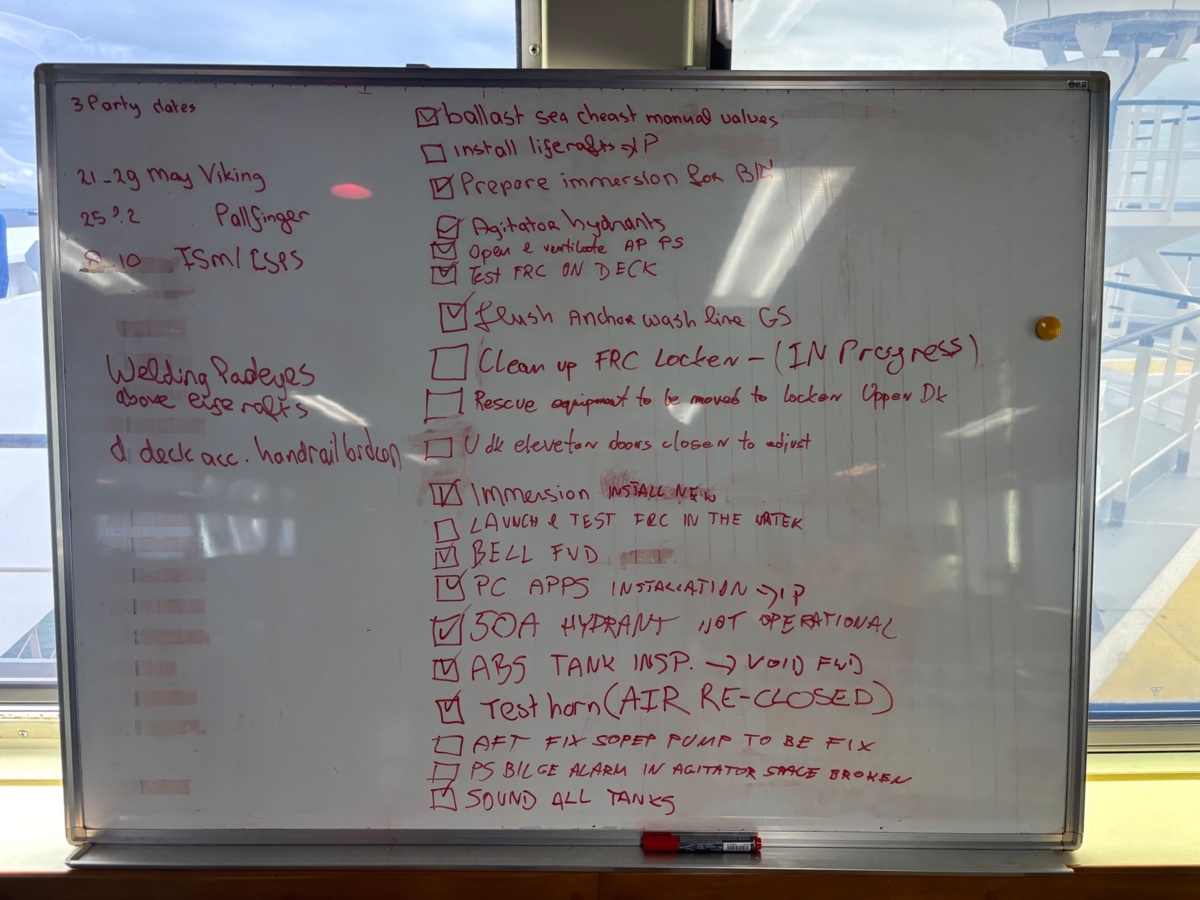 3 Party dates
21-29 May Viking
25 Palfinger
8-10 ISM/ISPS
Welding Padeyes
above
d deck acc. handrail
ballast sea cheast manual valves
install liferafts → IP
Prepare immersion for
Agitator hydrants
Open & ventilate AP PS
Test FRC ON DECK
flush Anchor wash line GS
Clean up FRC Locker - (IN Progress)
Rescue equipment to be moved to locker Upper Dk
U dk elevator doors closer to adjust
Immersion INSTALL NEW
LAUNCH & TEST FRC IN THE WATER
BELL FWD
PC APPS INSTALLATION → IP
50A HYDRANT NOT OPERATIONAL
ABS TANK INSP. → VOID FWD
Test horn (AIR RE-CLOSED)
AFT FIX SOPEP PUMP TO BE FIX
PS BILGE ALARM IN AGITATOR SPACE BROKEN
SOUND ALL TANKS